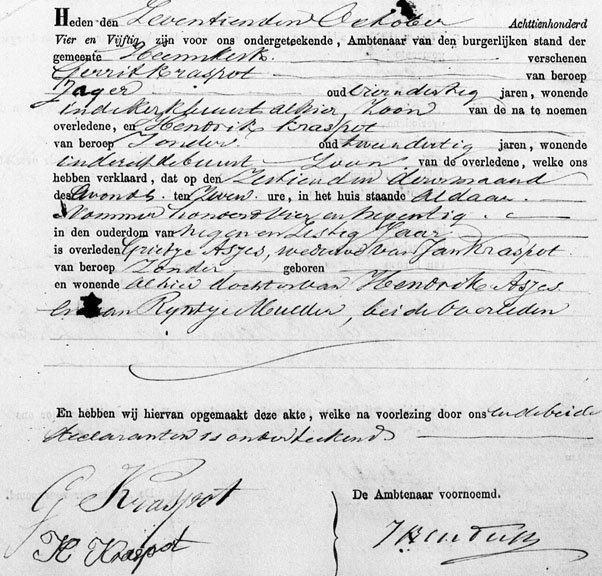 Heden den Zeventienden October Achttienhonderd
Vier en Vijftig zijn voor ons ondergeteekende, Ambtenaar van den burgerlijken stand der
gemeente Heemskerk verschenen
Gerrit Kraspot van beroep
Jager oud vierendertig jaren, wonende
in de Kerkbuurt alhier, Zoon van de na te noemen
overledene, en Hendrik Kraspot
van beroep Zonder oud tweendertig jaren, wonende
in dezelfde buurt Zoon van de overledene, welke ons
hebben verklaard, dat op den Zestienden dezer maand
des Avonds ten Zeven ure, in het huis staande Aldaar
Nommer honderd vier en negentig
in den ouderdom van negen en Zestig Jaar
is overleden Grietje Asjes, weduwe van Jan Kraspot
van beroep Zonder geboren
en wonende alhier dochter van Hendrik Asjes
en van Ryntje Mulder, beide overleden
En hebben wij hiervan opgemaakt deze akte, welke na voorlezing door ons en de beide
declaranten is onderteekend
G Kraspot
De Ambtenaar voornoemd.
K Kraspot